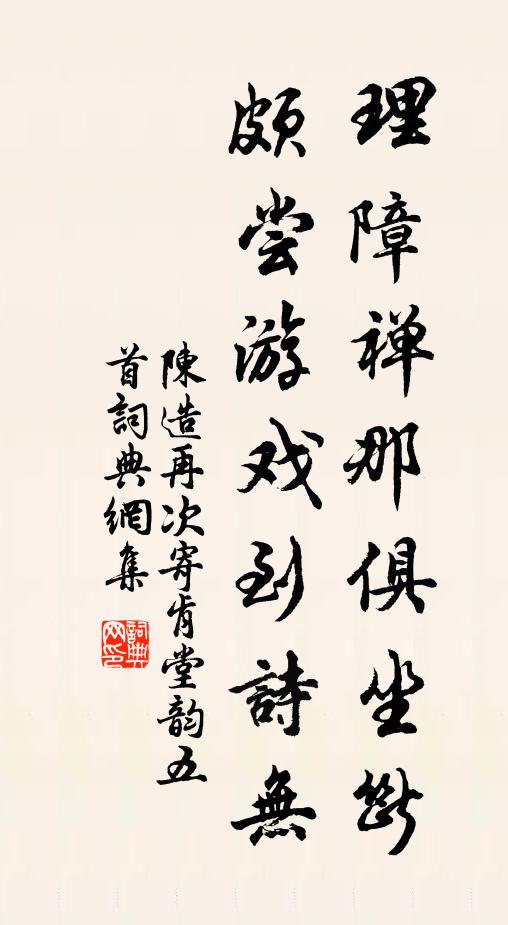 理障禅那俱坐断
颇尝游戏到詩無
陳造再次寄肯堂韵五
首詞典網集
詞典
网印